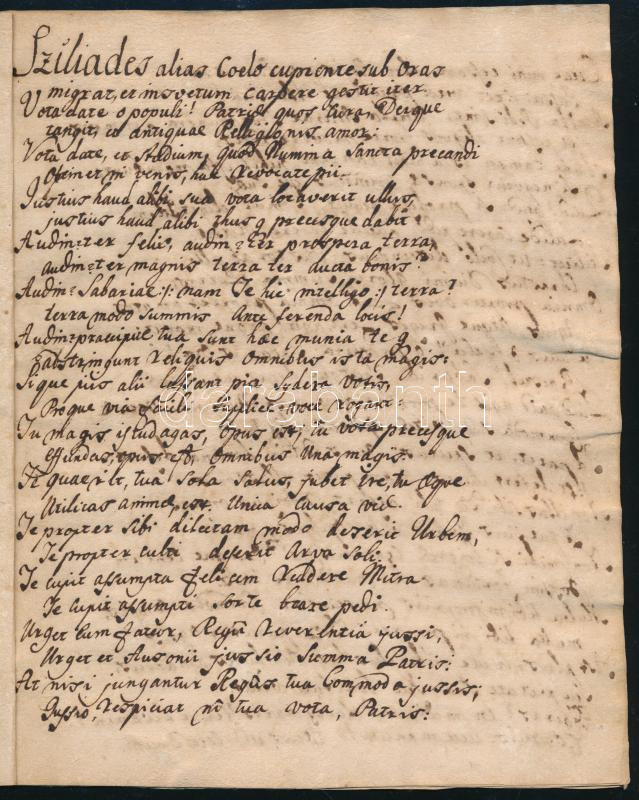 Sziliades alias Coelo cupiente sub oras
migrat, et insvetum carpere gestit iter.
Vota date o populi! Patriae quos cura, Deique
tangit, et antiquae Religionis amor:
Vota date, et Studium, quod Numina Sancta precandi
obtinet in venis, huc revocate pii.
Justius haud alibi sua vota locaverit ullus,
justius haud alibi thus precesque dabit.
Audin? ter felix, audin? ter prospera terra,
audin? ter magnis terra ter aucta bonis?
Audin? Sabariae /: nam Te hic intelligo :/ terra?
terra modo summis ante ferenda locis!
Audin? praecipue tua sunt haec munia te
abstringunt reliquis omnibus ista magis:
Sique pius alii pia votis,
Proque via rogant:
Tu magis istud agas, opus est, tu vota precesque
effundas, opus est, omnibus una magis.
It quaerit, tua sola salus, jubet ire, tu
Utilitas animae est unica causa viae.
Te propter sibi dilectam modo deserit Urbem,
Te propter culti deserit arva soli.
Te cupit assumpta felicem reddere Mitra
Te cupit assumpti sorte beare pedi.
Urget eum fateor, Regis reverentia jussi,
Urget et Ausonii jussio summa Patris:
At nisi jungantur Regis tua Commoda jussis,
Jussio, respiciat ni tua vota, Patris:
darabanth